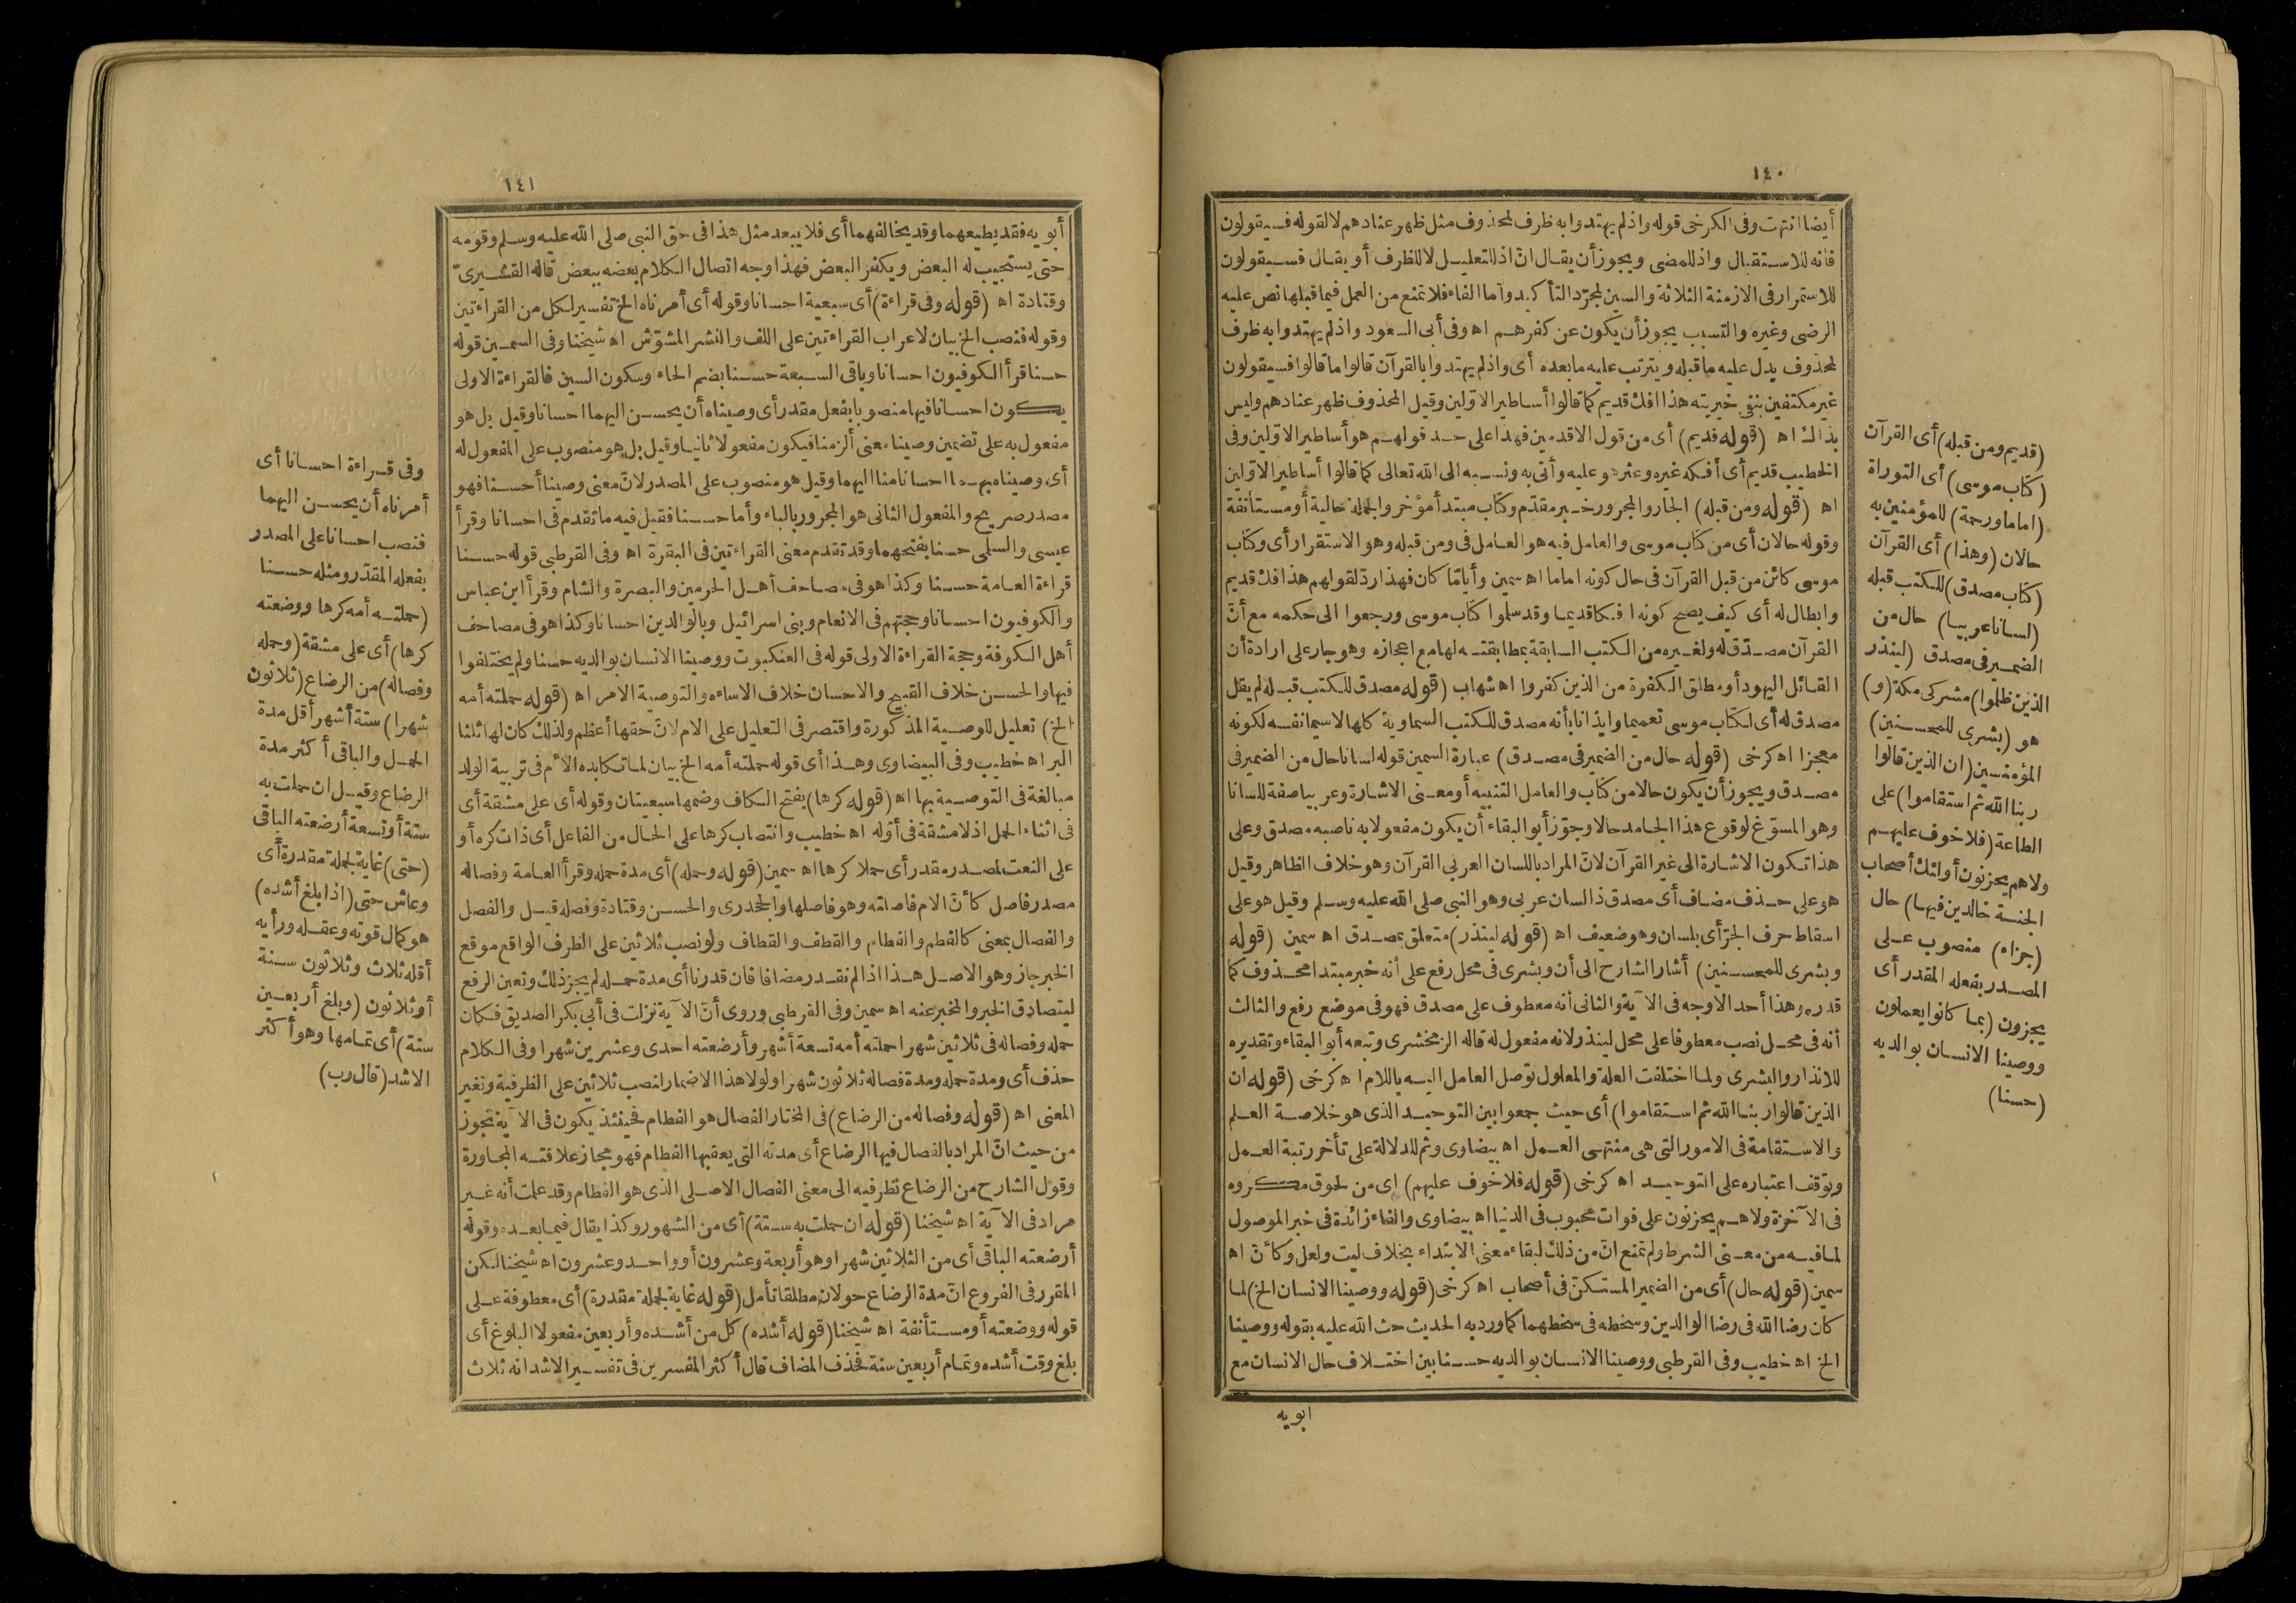 ١٤٠
أيضا انتهت وفى الكرخى قوله واذلم يهتدوا به ظرف لمحذوف مثل ظهر عنادهم لا لقوله فسيقولون
فانه للاستقبال واذ للمضى ويجوز أن يقال انّ اذ للتعليل لا للظرف أو يقال فسيقولون
للاستمرار فى الازمنة الثلاثة والسين لمجرّد التأكيد وأما الفاء فلا تمنع من العمل فيما قبلها نص عليه
الرضى وغيره والتسبب يجوز أن يكون عن كفرهم اه وفى أبى السعود واذلم يهتدوا به ظرف
لمحذوف يدل عليه ما قبله ويترتب عليه ما بعده أى واذلم يهتدوا بالقرآن قالوا ما قالوا فسيقولون
غير مكتفين بنفى خيريته هذا افك قديم كما قالوا أساطير الاوّلين وقيل المحذوف ظهر عنادهم وليس
بذاك اه (قوله قديم) أى من قول الاقدمين فهذا على حد قولهم هو أساطير الاوّلين وفى
الخطيب قديم أى أفكه غيره وعثر هو عليه وأتى به ونسبه الى الله تعالى كما قالوا أساطير الاوّلين
اه (قوله ومن قبله) الجار والمجرور خبر مقدّم وكتاب مبتدأ مؤخر والجملة حالية أو مستأنفة
وقوله حالان أى من كتاب موسى والعامل فيه هو العامل فى ومن قبله وهو الاستقرار أى وكتاب
موسى كائن من قبل القرآن فى حال كونه اماما اه سمين وأياما كان فهذا ردّ لقولهم هذا افك قديم
وابطال له أى كيف يصح كونه افكا قديما وقد سلموا كتاب موسى ورجعوا الى حكمه مع أنّ
القرآن مصدّق له ولغيره من الكتب السابقة بمطابقته لها مع اعجازه وهو جار على ارادة أن
القائل اليهود أو مطلق الكفرة من الذين كفروا اه شهاب (قوله مصدق للكتب قبله) لم يقل
مصدق له أى لكتاب موسى تعميما وايذانا بأنه مصدق للكتب السماوية كلها لاسيما نفسه لكونه
معجزا اه كرخى (قوله حال من الضمير فى مصدق) عبارة السمين قوله لسانا حال من الضمير فى
مصدق ويجوز أن يكون حالا من كتاب والعامل التنبيه أو معنى الاشارة وعربيا صفة للسانا
وهو المسوّغ لوقوع هذا الجامد حالا وجوّز أبو البقاء أن يكون مفعولا به ناصبه مصدق وعلى
هذا تكون الاشارة الى غير القرآن لانّ المراد باللسان العربى القرآن وهو خلاف الظاهر وقيل
هو على حذف مضاف أى مصدق ذا لسان عربى وهو النبى صلى الله عليه وسلم وقيل هو على
اسقاط حرف الجرّ أى بلسان وهو ضعيف اه (قوله لينذر) متعلق بمصدق اه سمين (قوله
وبشرى للمحسنين) أشار الشارح الى أن وبشرى فى محل رفع على أنه خبر مبتدا محذوف كما
قدره وهذا أحد الاوجه فى الآية والثانى أنه معطوف على مصدق فهو فى موضع رفع والثالث
أنه فى محل نصب معطوفا على محل لينذر لانه مفعول له قاله الزمخشرى وتبعه أبو البقاء وتقديره
للانذار والبشرى ولما اختلفت العلة والمعلول توصل العامل اليه باللام اه كرخى (قوله ان
الذين قالوا ربنا الله ثم استقاموا) أى حيث جمعوا بين التوحيد الذى هو خلاصة العلم
والاستقامة فى الامور التى هى منتهى العمل اه بيضاوى وثم للدلالة على تأخر رتبة العمل
وتوقف اعتباره على التوحيد اه كرخى (قوله فلا خوف عليهم) اى من لحوق مكروه
فى الآخرة ولا هم يحزنون على فوات محبوب فى الدنيا اه بيضاوى والفاء زائدة فى خبر الموصول
لما فيه من معنى الشرط ولم تمنع انّ من ذلك لبقاء معنى الابتداء بخلاف ليت ولعل وكأنّ اه
سمين (قوله حال) أى من الضمير المستكنّ فى أصحاب اه كرخى (قوله ووصينا الانسان الخ) لما
كان رضا الله فى رضا الوالدين وسخطه فى سخطهما كما ورد به الحديث حث الله عليه بقوله ووصينا
الخ اه خطيب وفى القرطبى ووصينا الانسان بوالديه حسنا بين اختلاف حال الانسان مع
ابويه
(قديم ومن قبله) أى القرآن
(كتاب موسى) أى التوراة
(اماما ورحمة) للمؤمنين به
حالان (وهذا) أى القرآن
(كتاب مصدق) للكتب قبله
(لسانا عربيا) حال من
الضمير فى مصدق (لينذر
الذين ظلموا) مشركى مكة (و)
هو (بشرى للمحسنين)
المؤمنين (ان الذين قالوا
ربنا الله ثم استقاموا) على
الطاعة (فلا خوف عليهم
ولا هم يحزنون أولئك أصحاب
الجنة خالدين فيها) حال
(جزاء) منصوب على
المصدر بفعله المقدر أى
يجزون (بما كانوا يعملون
ووصينا الانسان بوالديه
(حسنا)
١٤١
أبويه فقد يطيعهما وقد يخالفهما أى فلا يبعد مثل هذا فى حق النبى صلى الله عليه وسلم وقومه
حتى يستجيب له البعض ويكفر البعض فهذا وجه اتصال الكلام بعضه ببعض قاله القشيرىّ
وقتادة اه (قوله وفى قراءة) أى سبعية احسانا وقوله أى أمرناه الخ تفسير لكل من القراءتين
وقوله فنصب الخ بيان لاعراب القراءتين على اللف والنشر المشوّش اه شيخنا وفى السمين قوله
حسنا قرأ الكوفيون احسانا وباقى السبعة حسنا بضم الحاء وسكون السين فالقراءة الاولى
يكون احسانا فيها منصوبا بفعل مقدر أى وصيناه أن يحسن اليهما احسانا وقيل بل هو
مفعول به على تضمين وصينا معنى ألزمنا فيكون مفعولا ثانيا وقيل بل هو منصوب على المفعول له
أى وصيناه بهما احسانا منا اليهما وقيل هو منصوب على المصدر لانّ معنى وصينا أحسنا فهو
مصدر صريح والمفعول الثانى هو المجرور بالباء وأما حسنا فقيل فيه ما تقدم فى احسانا وقرأ
عيسى والسلمى حسنا بفتحهما وقد تقدم معنى القراءتين فى البقرة اه وفى القرطبى قوله حسنا
قراءة العامة حسنا وكذا هو فى مصاحف أهل الحرمين والبصرة والشام وقرأ ابن عباس
والكوفيون احسانا وحجتهم فى الانعام وبنى اسرائيل وبالوالدين احسانا وكذا هو فى مصاحف
أهل الكوفة وحجة القراءة الاولى قوله فى العنكبوت ووصينا الانسان بوالديه حسنا ولم يختلفوا
فيها والحسن خلاف القبيح والاحسان خلاف الاساءه والتوصية الامر اه (قوله حملته أمه
الخ) تعليل للوصية المذكورة واقتصر فى التعليل على الام لانّ حقها أعظم ولذلك كان لها ثلثا
البر اه خطيب وفى البيضاوى وهذا أى قوله حملته أمه الخ بيان لما تكابده الام فى تربية الولد
مبالغة فى التوصية بها اه (قوله كرها) بفتح الكاف وضمها سبعيتان وقوله أى على مشقة أى
فى اثناء الحمل اذ لا مشقة فى أوّله اه خطيب وانتصاب كرها على الحال من الفاعل أى ذات كره أو
على النعت لمصدر مقدر أى حملا كرها اه سمين (قوله وحمله) أى مدة حمله وقرأ العامة وفصاله
مصدر فاصل كأنّ الام فاصلته وهو فاصلها والجحدرى والحسن وقتادة وفصله قيل والفصل
والفصال بمعنى كالفطم والفطام والقطف والقطاف ولو نصب ثلاثين على الظرف الواقع موقع
الخبر جاز وهو الاصل هذا اذا لم نقدر مضافا فان قدرنا أى مدة حمله لم يجز ذلك وتعين الرفع
ليتصادق الخبر والمخبر عنه اه سمين وفى القرطبى وروى أنّ الآية نزلت فى أبى بكر الصديق فكان
حمله وفصاله فى ثلاثين شهرا حملته أمه تسعة أشهر وأرضعته احدى وعشرين شهرا وفى الكلام
حذف أى ومدة حمله ومدة فصاله ثلاثون شهرا ولولا هذا الاضمار لنصب ثلاثين على الظرفية وتغير
المعنى اه (قوله وفصاله من الرضاع) فى المختار الفصال هو الفطام فحينئذ يكون فى الآية تجوز
من حيث انّ المراد بالفصال فيها الرضاع أى مدته التى يعقبها الفطام فهو مجاز علاقته المجاورة
وقول الشارح من الرضاع نظر فيه الى معنى الفصال الاصلى الذى هو الفطام وقد علمت أنه غير
مراد فى الآية اه شيخنا (قوله ان حملت به ستة) أى من الشهور وكذا يقال فيما بعده وقوله
أرضعته الباقى أى من الثلاثين شهرا وهو أربعة وعشرون أو واحد وعشرون اه شيخنا لكن
المقرر فى الفروع انّ مدة الرضاع حولان مطلقا تأمل (قوله غاية لجملة مقدرة) أى معطوفة على
قوله ووضعته أو مستأنفة اه شيخنا (قوله أشده) كل من أشده وأربعين مفعولا البلوغ أى
بلغ وقت أشده وتمام أربعين سنة فحذف المضاف قال أكثر المفسرين فى تفسير الاشد انه ثلاث
وفى قراءة احسانا أى
أمرناه أن يحسن اليهما
فنصب احسانا على المصدر
بفعله المقدّر ومثله حسنا
(حملته أمه كرها ووضعته
كرها) أى على مشقة (وحمله
وفصاله) من الرضاع (ثلاثون
شهرا) ستة أشهر أقل مدة
الحمل والباقى أكثر مدة
الرضاع وقيل ان حملت به
ستة أو تسعة أرضعته الباقى
(حتى) غاية لجملة مقدرة أى
وعاش حتى (اذا بلغ أشده)
هو كمال قوته وعقله ورأيه
أقله ثلاث وثلاثون سنة
أو ثلاثون (وبلغ أربعين
سنة) أى تمامها وهو أكثر
الاشد (قال رب)